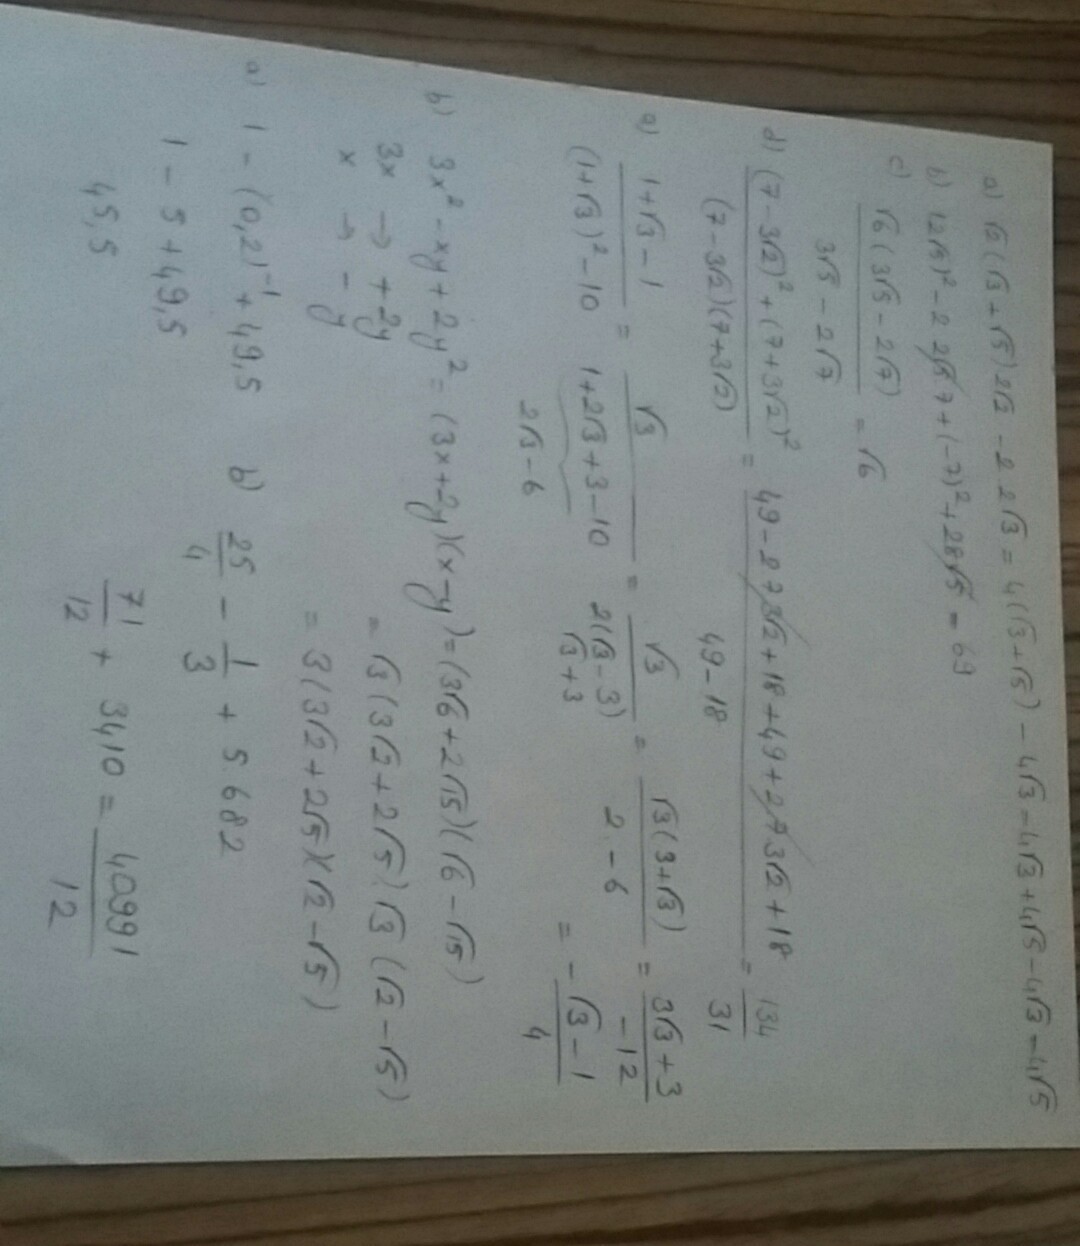 a) √2 (√3 + √5) 2√2 - 2 2√3 = 4(√3+√5) - 4√3 = 4√3 + 4√5 - 4√3 = 4√5
b) (2√5)² - 2 2√5 7 + (-7)² + 28√5 = 69
c) √6 (3√5 - 2√7) / 3√5 - 2√7 = √6
d) (7-3√2)² + (7+3√2)² / (7-3√2)(7+3√2) = 49 - 2 7 3√2 + 18 + 49 + 2 7 3√2 + 18 / 49 - 18 = 134 / 31
a) 1+√3 - 1 / (1+√3)² - 10 = √3 / 1+2√3+3-10 = √3 / 2(√3-3) = √3 (3+√3) / 2 · -6 = 3√3+3 / -12
2√3-6 √3+3 = - √3-1 / 4
b) 3x² - xy + 2y² = (3x+2y)(x-y) = (3√6 + 2√15)(√6 - √15)
3x → +2y = √3 (3√2 + 2√5) √3 (√2 - √5)
x → - y = 3(3√2 + 2√5)(√2 - √5)
a) 1 - (0,2)⁻¹ + 49,5 b) 25/4 - 1/3 + 5 682
1 - 5 + 49,5
45,5 71/12 + 3410 = 40991/12